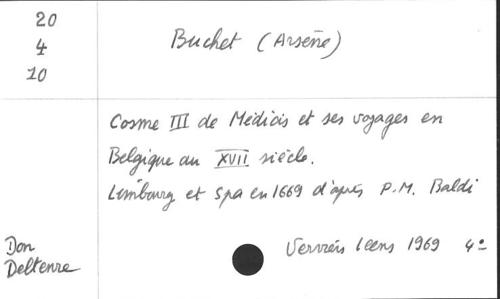 20
4
10
Buchet (Arsène)
Cosme III de Médicis et ses voyages en
Belgique au XVII siècle.
Limbourg et Spa en 1669 d'après P.M. Baldi
Verviers Leens 1969 4°
Don
Deltenre